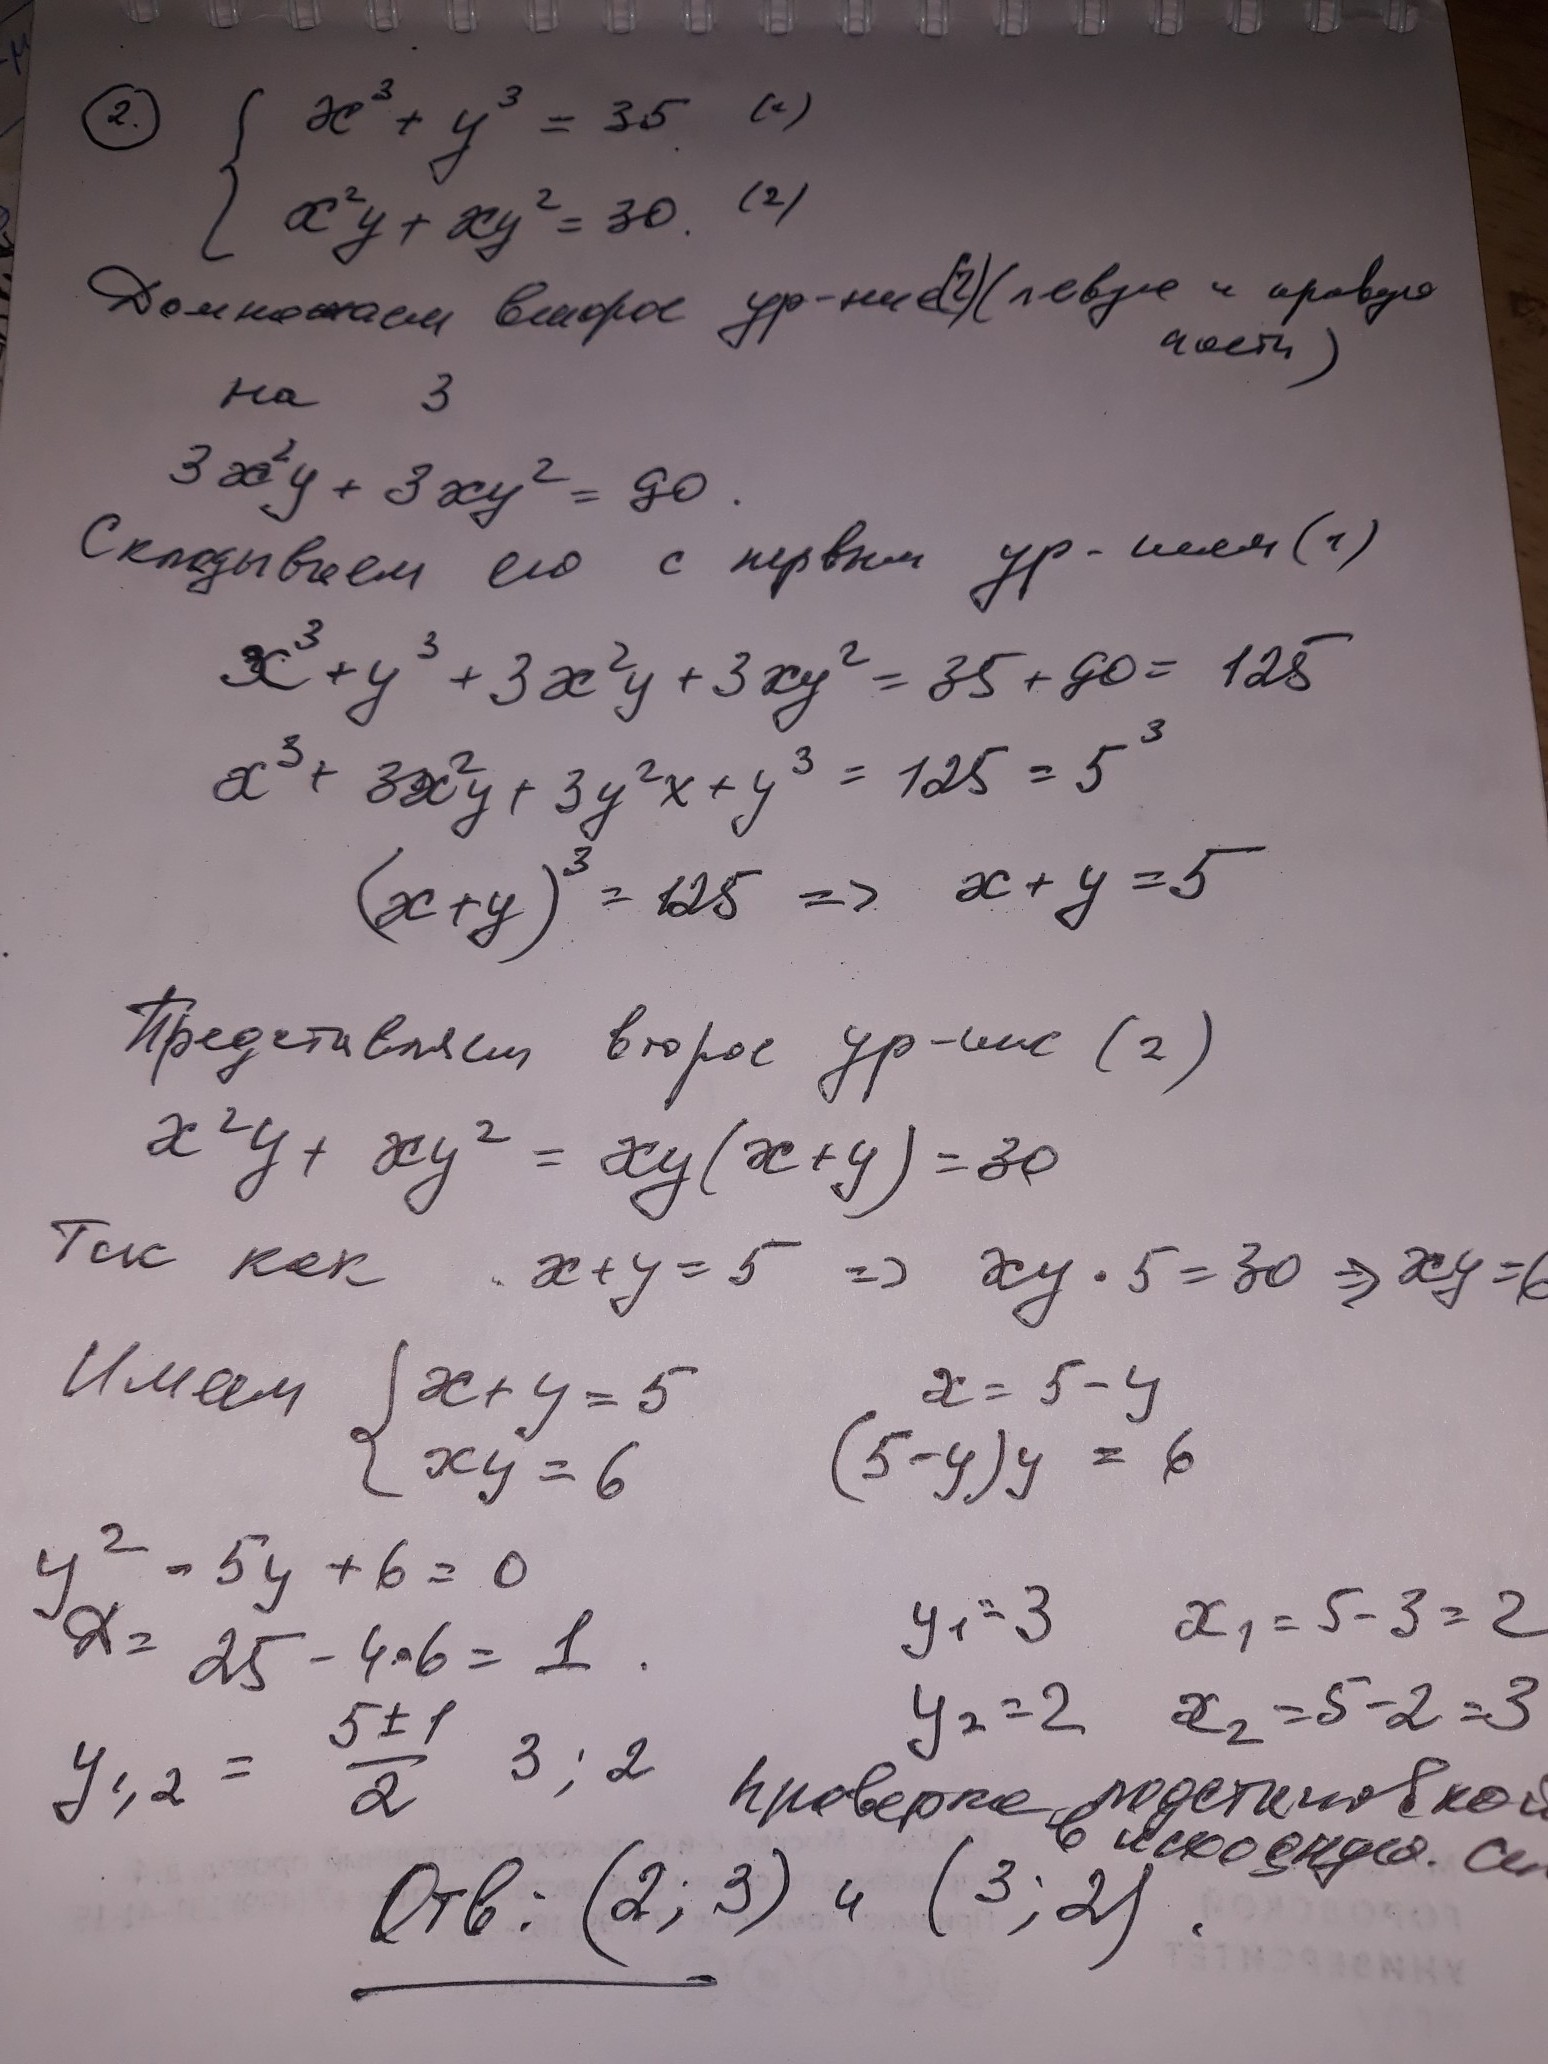 2. x³ + y³ = 35 (1)
x²y + xy² = 30. (2)
Домножаем второе ур-ние (2) (левую и правую
части)
на 3
3x²y + 3xy² = 90.
Складываем его с первым ур-нием (1)
x³ + y³ + 3x²y + 3xy² = 35 + 90 = 125
x³ + 3x²y + 3y²x + y³ = 125 = 5³
(x+y)³ = 125 => x + y = 5
Представляем второе ур-ние (2)
x²y + xy² = xy(x+y) = 30
Так как x+y = 5 => xy · 5 = 30 => xy = 6
Имеем x + y = 5 x = 5 - y
xy = 6 (5-y)y = 6
y² - 5y + 6 = 0
D = 25 - 4·6 = 1.
y₁ = 3 x₁ = 5 - 3 = 2
y₂ = 2 x₂ = 5 - 2 = 3
y₁,₂ = (5 ± 1)/2 3; 2
проверка подстановкой
в исходную.
Отв: (2; 3) и (3; 2).
ГОРОДСКОЙ
УНИВЕРСИТЕТ